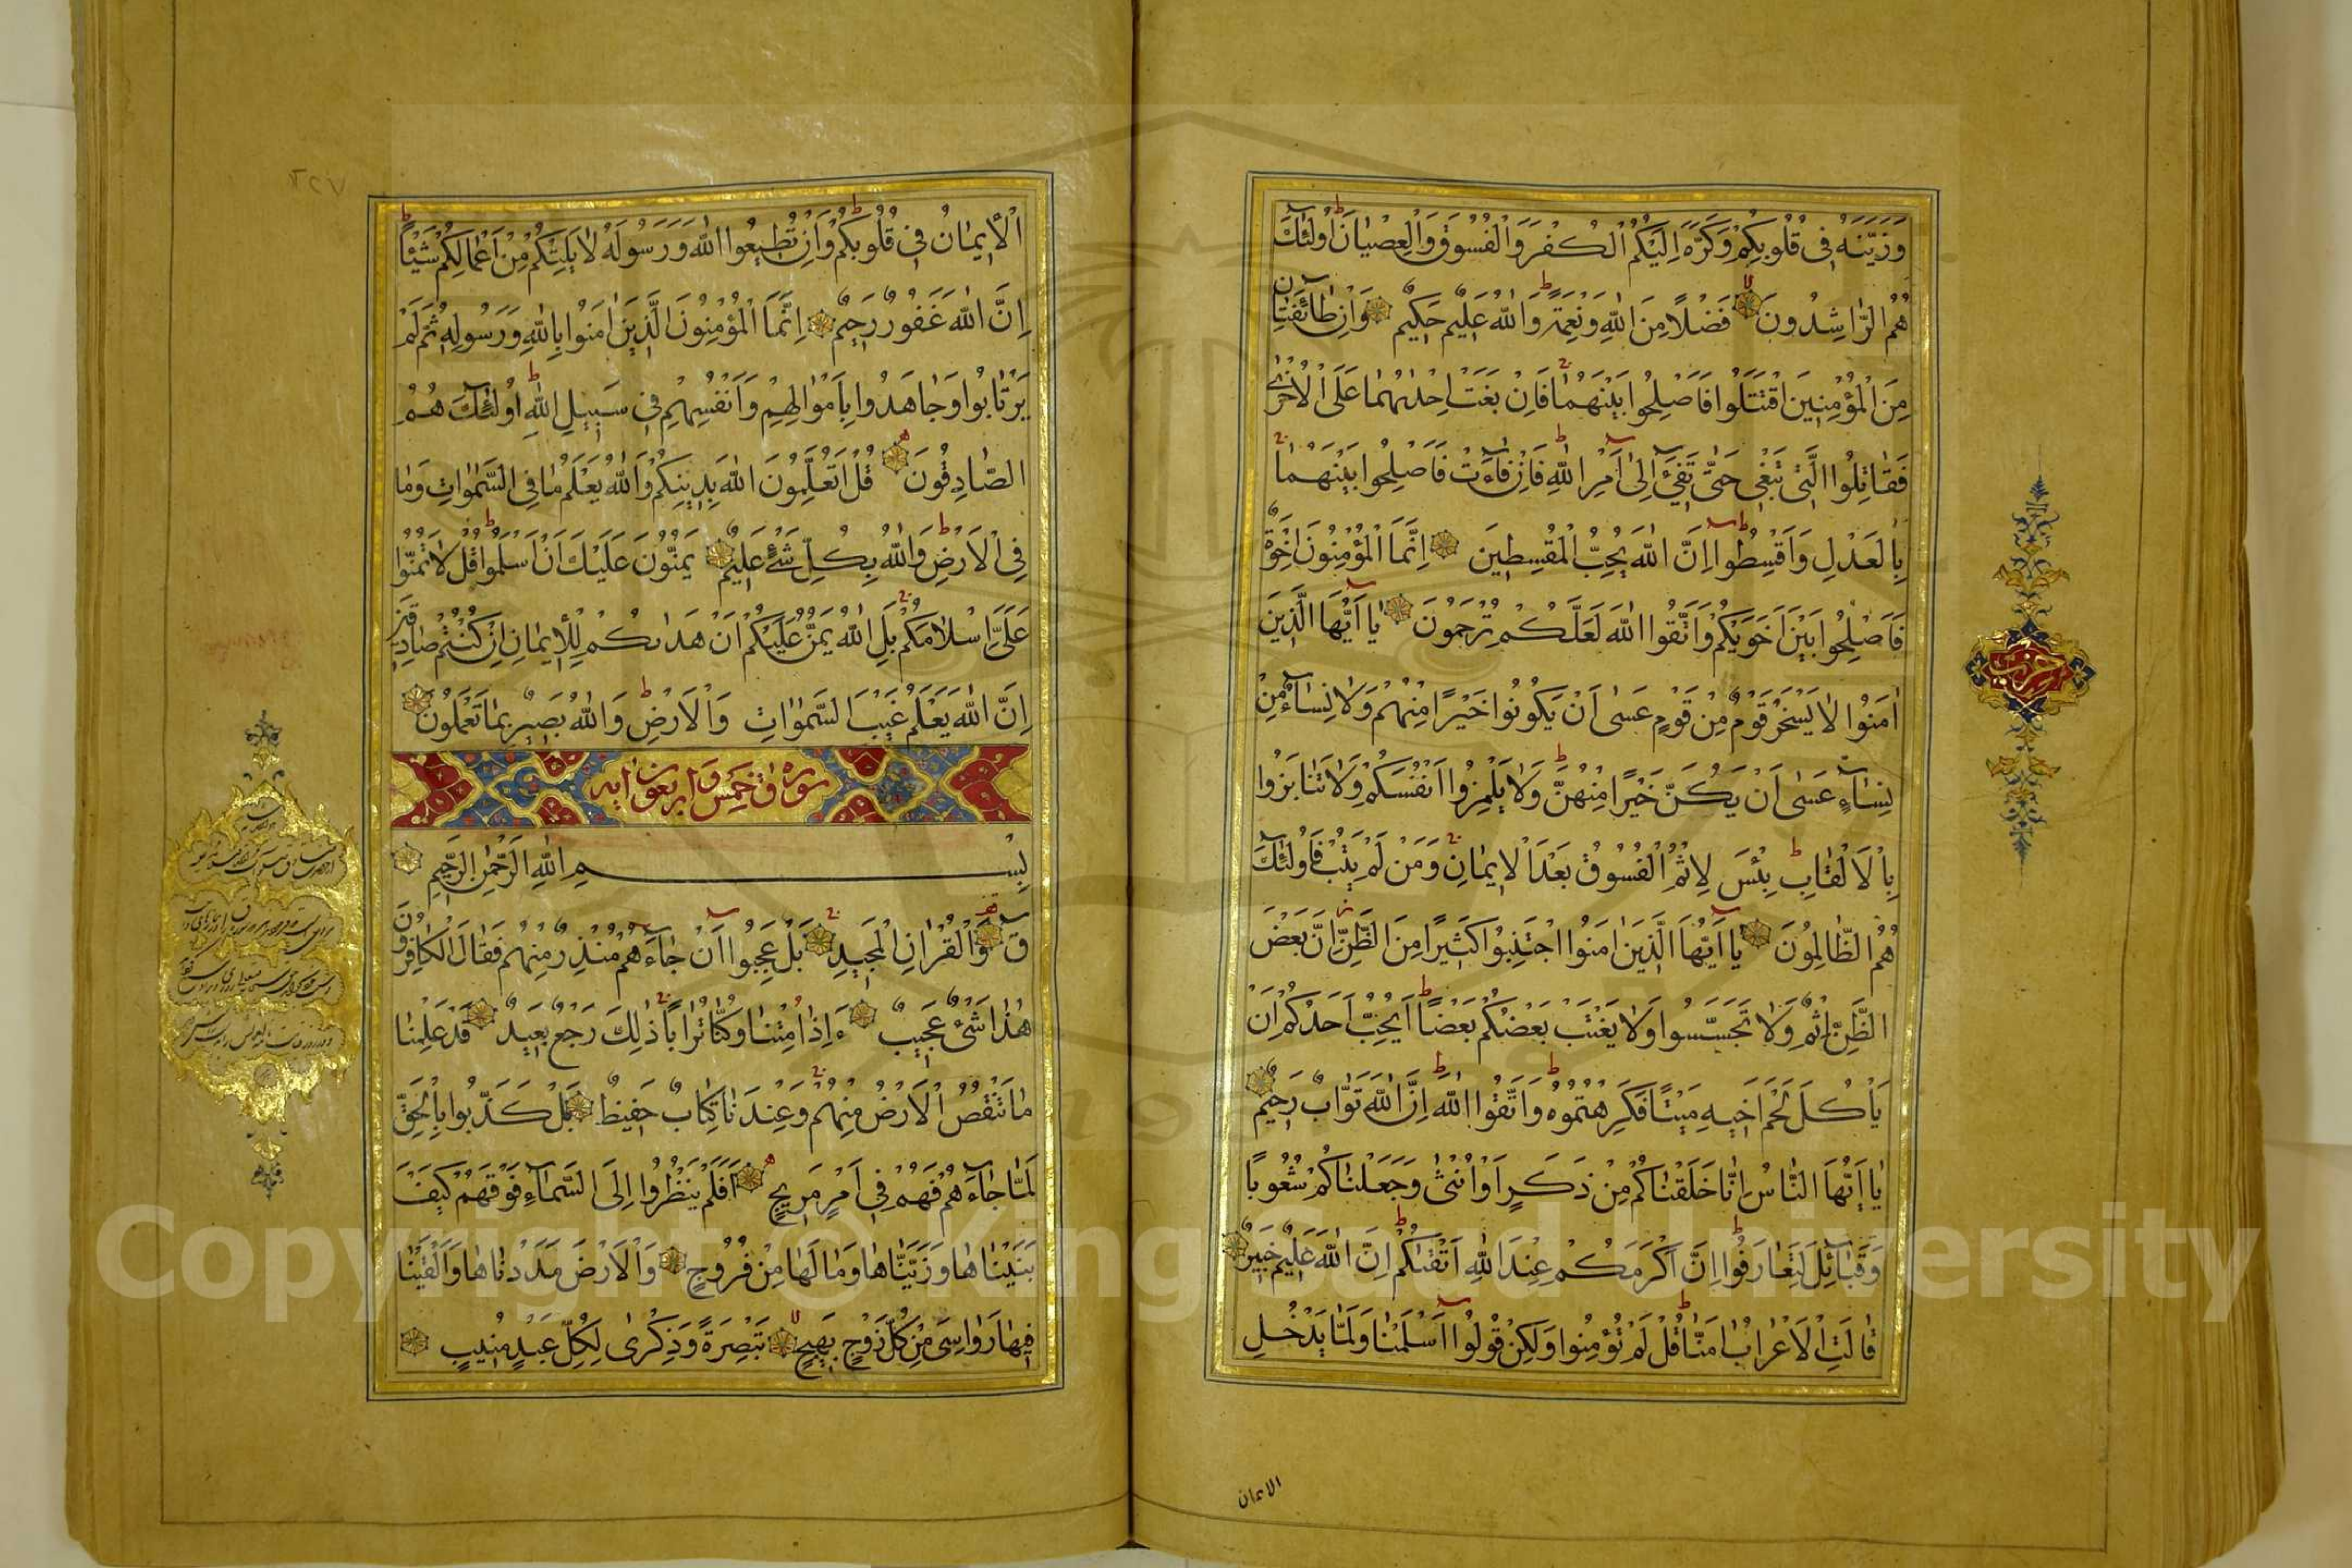 وَزَيَّنَهُ فِي قُلُوبِكُمْ وَكَرَّهَ اِلَيْكُمُ الْكُفْرَ وَالْفُسُوقَ وَالْعِصْيَانَ اُولٰئِكَ
هُمُ الرَّاشِدُونَ فَضْلًا مِنَ اللّٰهِ وَنِعْمَةً وَاللّٰهُ عَلِيمٌ حَكِيمٌ وَاِنْ طَائِفَتَانِ
مِنَ الْمُؤْمِنِينَ اقْتَتَلُوا فَاَصْلِحُوا بَيْنَهُمَا فَاِنْ بَغَتْ اِحْدٰىهُمَا عَلَى الْاُخْرٰى
فَقَاتِلُوا الَّتِي تَبْغِي حَتّٰى تَفِيءَ اِلٰى اَمْرِ اللّٰهِ فَاِنْ فَاءَتْ فَاَصْلِحُوا بَيْنَهُمَا
بِالْعَدْلِ وَاَقْسِطُوا اِنَّ اللّٰهَ يُحِبُّ الْمُقْسِطِينَ اِنَّمَا الْمُؤْمِنُونَ اِخْوَةٌ
فَاَصْلِحُوا بَيْنَ اَخَوَيْكُمْ وَاتَّقُوا اللّٰهَ لَعَلَّكُمْ تُرْحَمُونَ يَا اَيُّهَا الَّذِينَ
اٰمَنُوا لَا يَسْخَرْ قَوْمٌ مِنْ قَوْمٍ عَسٰى اَنْ يَكُونُوا خَيْرًا مِنْهُمْ وَلَا نِسَاءٌ مِنْ
نِسَاءٍ عَسٰى اَنْ يَكُنَّ خَيْرًا مِنْهُنَّ وَلَا تَلْمِزُوا اَنْفُسَكُمْ وَلَا تَنَابَزُوا
بِالْاَلْقَابِ بِئْسَ لِاثْمُ الْفُسُوقُ بَعْدَ الْاِيمَانِ وَمَنْ لَمْ يَتُبْ فَاُولٰئِكَ
هُمُ الظَّالِمُونَ يَا اَيُّهَا الَّذِينَ اٰمَنُوا اجْتَنِبُوا كَثِيرًا مِنَ الظَّنِّ اِنَّ بَعْضَ
الظَّنِّ اِثْمٌ وَلَا تَجَسَّسُوا وَلَا يَغْتَبْ بَعْضُكُمْ بَعْضًا اَيُحِبُّ اَحَدُكُمْ اَنْ
يَاْكُلَ لَحْمَ اَخِيهِ مَيْتًا فَكَرِهْتُمُوهُ وَاتَّقُوا اللّٰهَ اِنَّ اللّٰهَ تَوَّابٌ رَحِيمٌ
يَا اَيُّهَا النَّاسُ اِنَّا خَلَقْنَاكُمْ مِنْ ذَكَرٍ اَوْ اُنْثٰى وَجَعَلْنَاكُمْ شُعُوبًا
وَقَبَائِلَ لِتَعَارَفُوا اِنَّ اَكْرَمَكُمْ عِنْدَ اللّٰهِ اَتْقٰىكُمْ اِنَّ اللّٰهَ عَلِيمٌ خَبِيرٌ
قَالَتِ الْاَعْرَابُ اٰمَنَّا قُلْ لَمْ تُؤْمِنُوا وَلٰكِنْ قُولُوا اَسْلَمْنَا وَلَمَّا يَدْخُلِ
الايمان
حزب
الْاِيمَانُ فِي قُلُوبِكُمْ وَاِنْ تُطِيعُوا اللّٰهَ وَرَسُولَهُ لَا يَلِتْكُمْ مِنْ اَعْمَالِكُمْ شَيْئًا
اِنَّ اللّٰهَ غَفُورٌ رَحِيمٌ اِنَّمَا الْمُؤْمِنُونَ الَّذِينَ اٰمَنُوا بِاللّٰهِ وَرَسُولِهِ ثُمَّ لَمْ
يَرْتَابُوا وَجَاهَدُوا بِاَمْوَالِهِمْ وَاَنْفُسِهِمْ فِي سَبِيلِ اللّٰهِ اُولٰئِكَ هُمُ
الصَّادِقُونَ قُلْ اَتُعَلِّمُونَ اللّٰهَ بِدِينِكُمْ وَاللّٰهُ يَعْلَمُ مَا فِي السَّمٰوَاتِ وَمَا
فِي الْاَرْضِ وَاللّٰهُ بِكُلِّ شَيْءٍ عَلِيمٌ يَمُنُّونَ عَلَيْكَ اَنْ اَسْلَمُوا قُلْ لَا تَمُنُّوا
عَلَيَّ اِسْلَامَكُمْ بَلِ اللّٰهُ يَمُنُّ عَلَيْكُمْ اَنْ هَدٰىكُمْ لِلْاِيمَانِ اِنْ كُنْتُمْ صَادِقِينَ
اِنَّ اللّٰهَ يَعْلَمُ غَيْبَ السَّمٰوَاتِ وَالْاَرْضِ وَاللّٰهُ بَصِيرٌ بِمَا تَعْمَلُونَ
سورة ق خمس واربعون اية
بِسْمِ اللّٰهِ الرَّحْمٰنِ الرَّحِيمِ
ق وَالْقُرْاٰنِ الْمَجِيدِ بَلْ عَجِبُوا اَنْ جَاءَهُمْ مُنْذِرٌ مِنْهُمْ فَقَالَ الْكَافِرُونَ
هٰذَا شَيْءٌ عَجِيبٌ ءَاِذَا مِتْنَا وَكُنَّا تُرَابًا ذٰلِكَ رَجْعٌ بَعِيدٌ قَدْ عَلِمْنَا
مَا تَنْقُصُ الْاَرْضُ مِنْهُمْ وَعِنْدَنَا كِتَابٌ حَفِيظٌ بَلْ كَذَّبُوا بِالْحَقِّ
لَمَّا جَاءَهُمْ فَهُمْ فِي اَمْرٍ مَرِيجٍ اَفَلَمْ يَنْظُرُوا اِلَى السَّمَاءِ فَوْقَهُمْ كَيْفَ
بَنَيْنَاهَا وَزَيَّنَّاهَا وَمَا لَهَا مِنْ فُرُوجٍ وَالْاَرْضَ مَدَدْنَاهَا وَاَلْقَيْنَا
فِيهَا رَوَاسِيَ مِنْ كُلِّ زَوْجٍ بَهِيجٍ تَبْصِرَةً وَذِكْرٰى لِكُلِّ عَبْدٍ مُنِيبٍ
Copyright © King Saud University